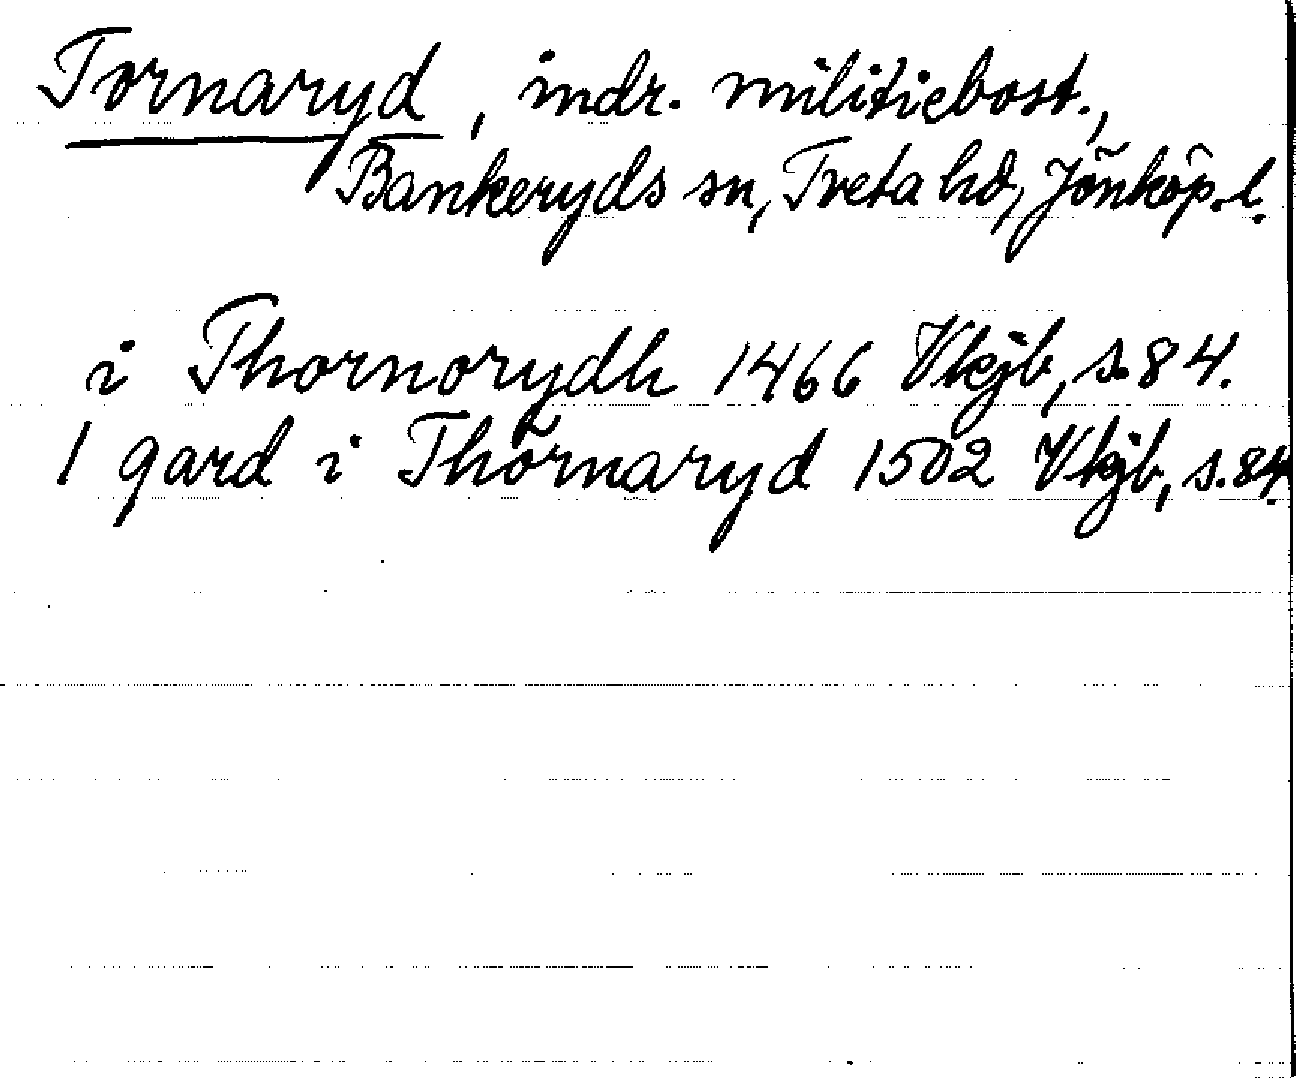 Tornaryd, indr. militiebost.,
Bankeryds sn, Tveta hd, Jönköp. l.
i Thornorydh 1466 Vkjb, s. 84.
1 gard i Thörnaryd 1502 Vkjb, s. 84.